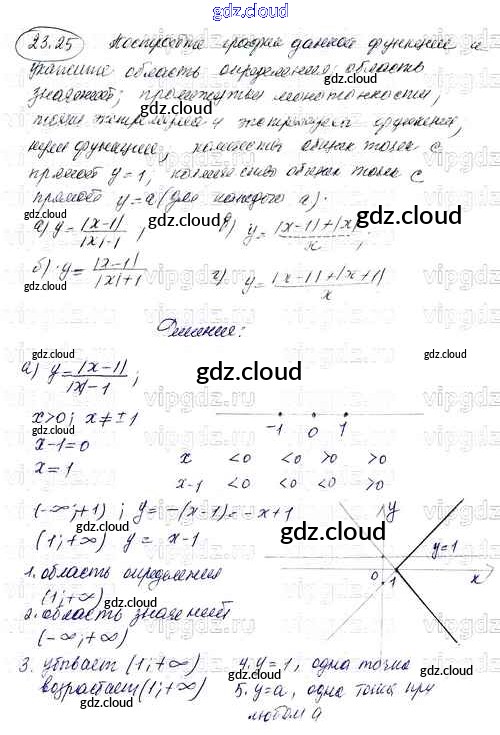 gdz.cloud
23.25 Постройте график данной функции и
укажите область определения; область
значений; промежутки монотонности;
точки экстремума и экстремумы функции;
нули функции; количество общих точек с
прямой y = 1, количество общих точек с
прямой y = a (для каждого a).
а) y = |x-1| / |x|-1 ; в) y = |x-1|+|x| / x ;
б) y = |x-1| / |x|+1 г) y = |x-1|+|x+1| / x
Решение:
а) y = |x-1| / |x|-1 ;
x>0; x ≠ ±1
x-1=0
x = 1
-1 0 1
x <0 <0 >0 >0
x-1 <0 <0 <0 >0
(-∞;+1) ; y = -(x-1) = -x+1
(1;+∞) y = x-1
y
y=1
0 1 x
1. область определения
(1;+∞)
2. область значений
(-∞;+∞)
3. убывает (1;+∞)
возрастает (1;+∞)
4. y = 1, одна точка
5. y=a, одна точка при
любом a
gdz.cloud
vipgdz.ru